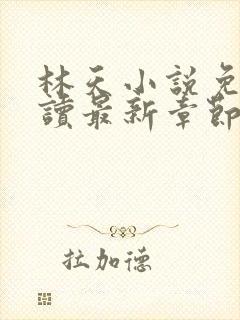 林天小説免
讀最新章節
拉加德